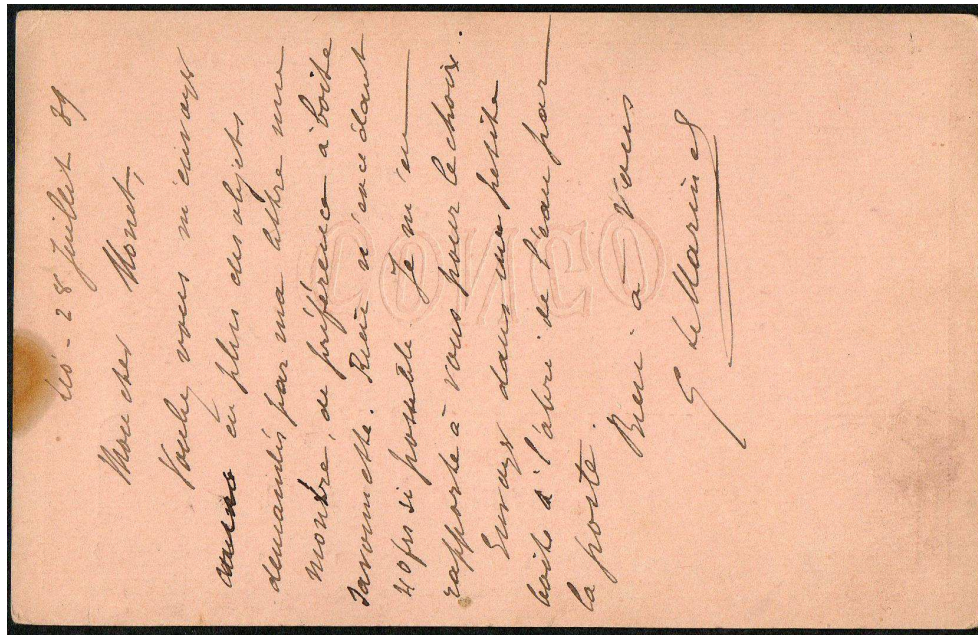 28 Juillet 89
Mon cher Monet,
Voulez vous m'envoyer
en plus des objets
demandés par ma lettre une
montre, de préférence à boite
savonnette. Prix n'excédant
40 frs si possible. Je m'en
rapporte à vous pour le choix.
Envoyez dans une petite
boite à l'abri de l'eau par
la poste.
Bien à Vous
G de Marinel
CONGO